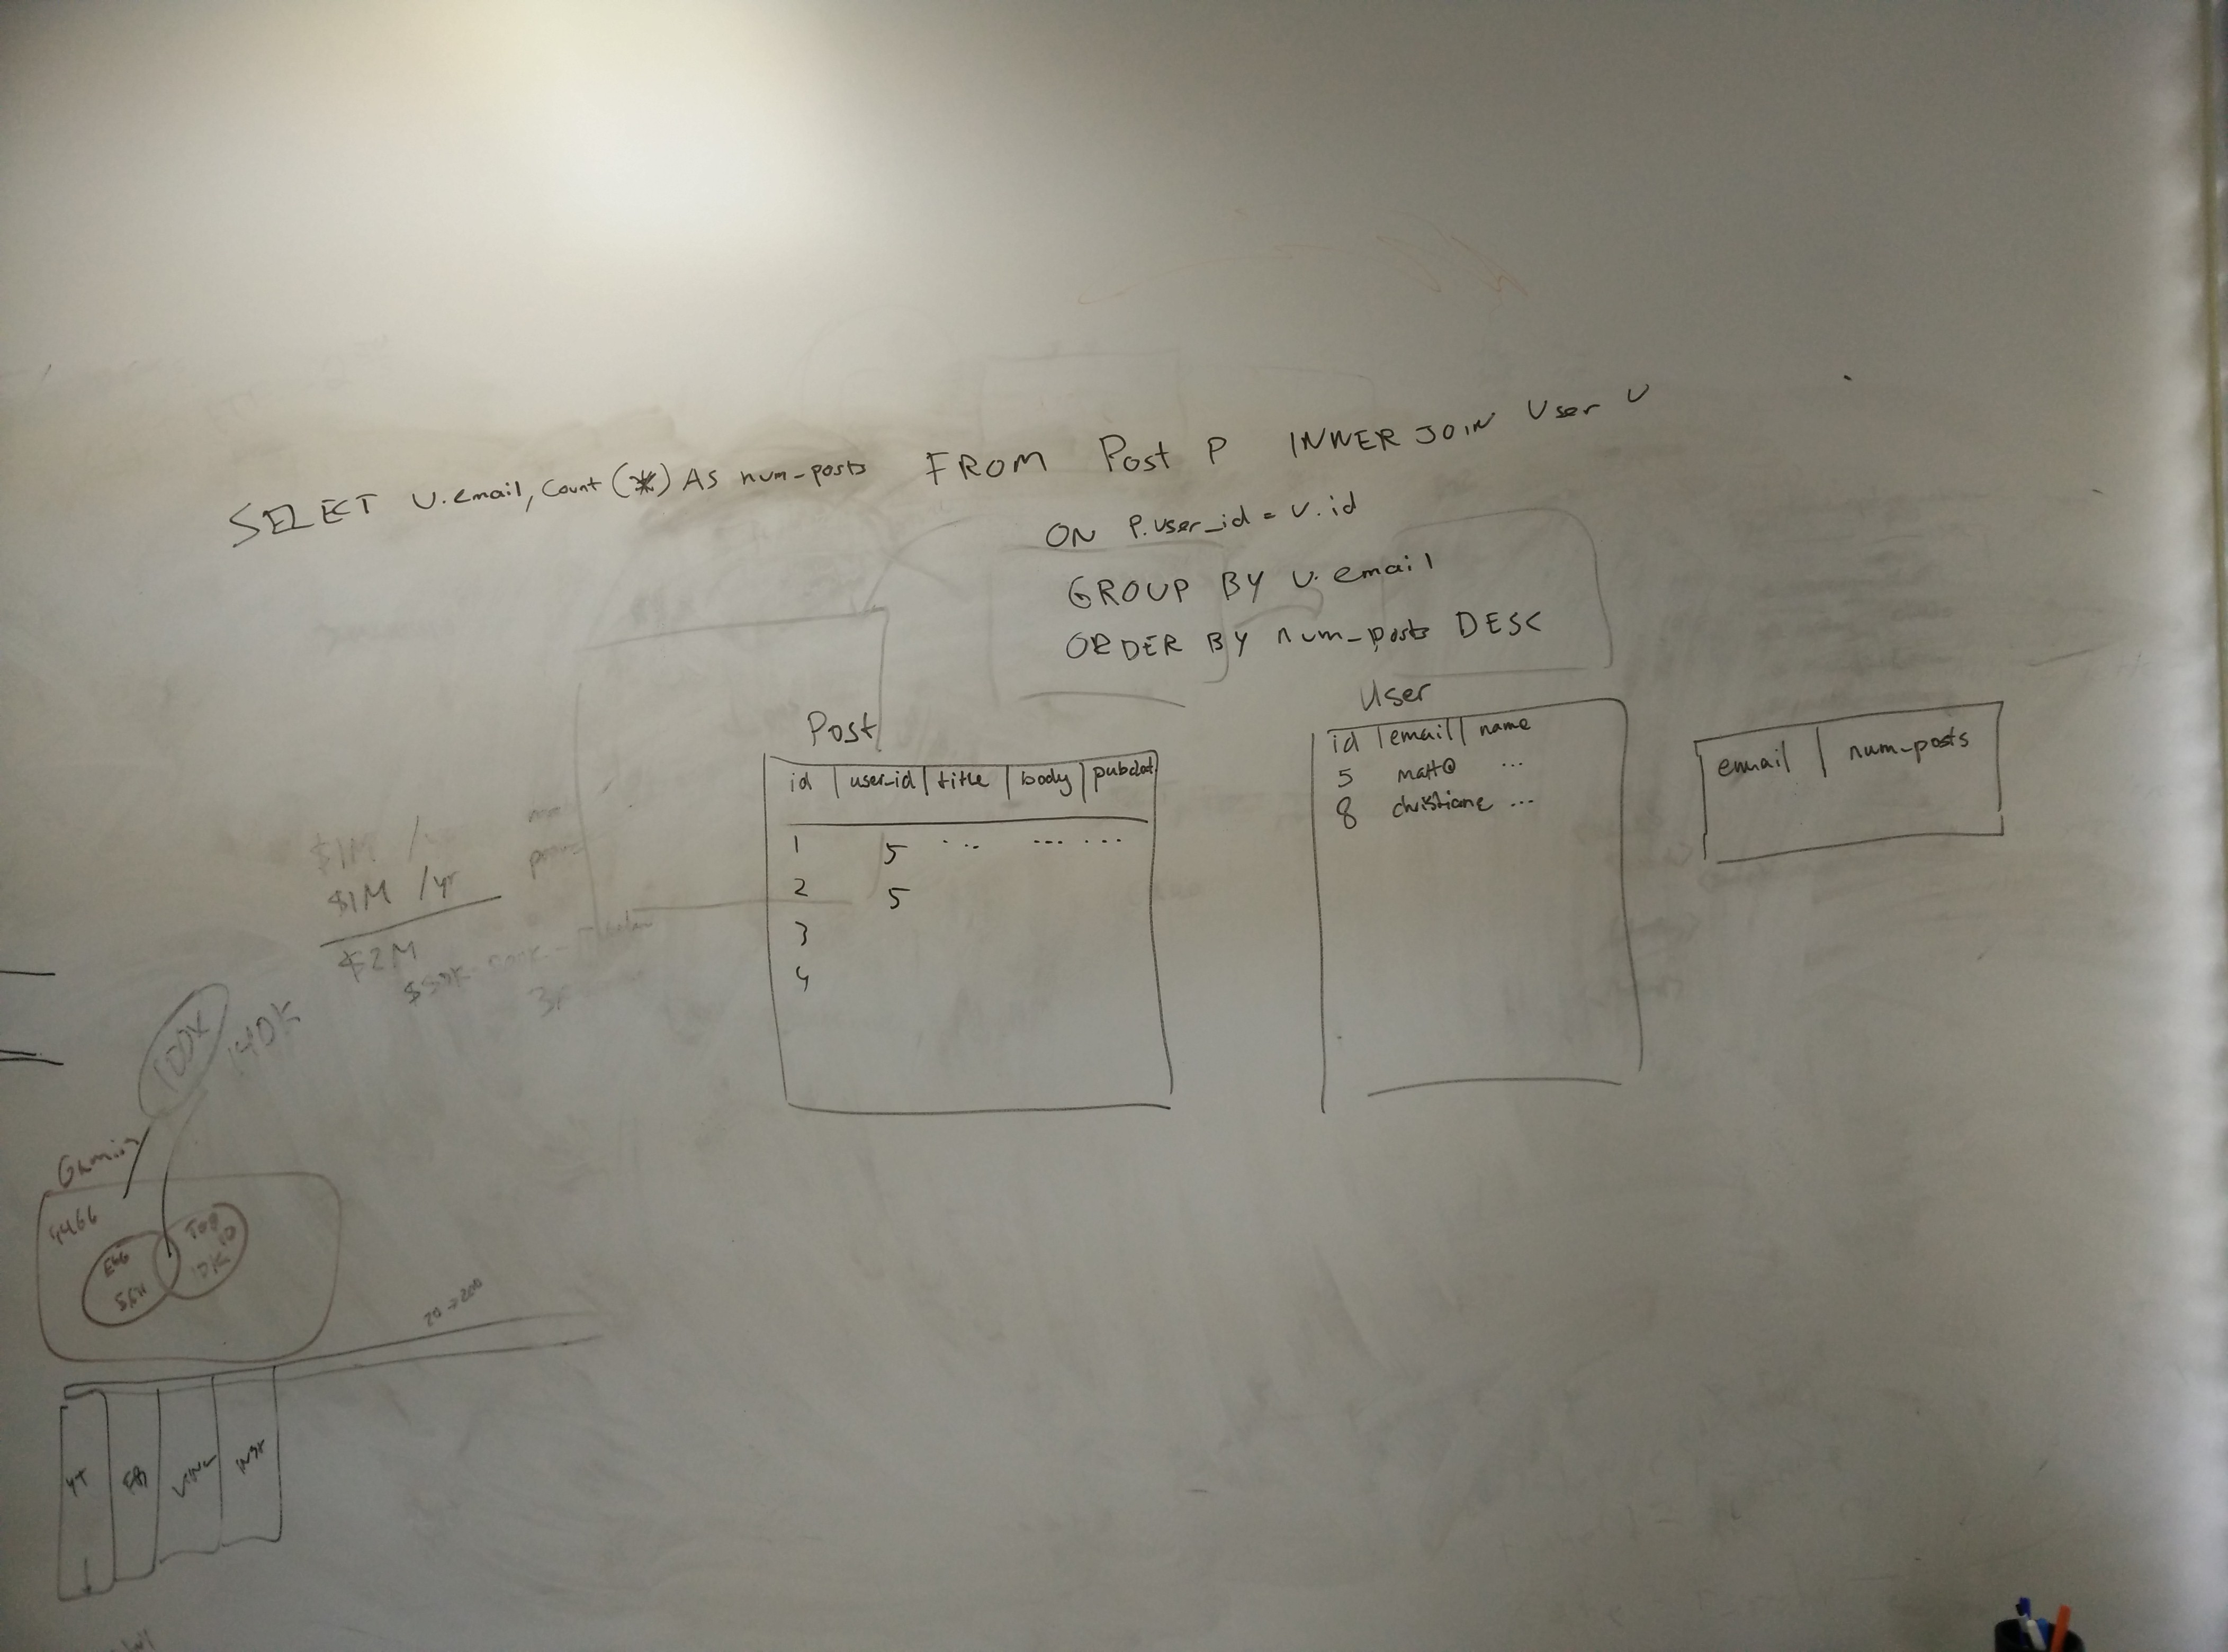 SELECT U.email, Count (*) AS num_posts FROM Post P INNER JOIN User U
ON P.user_id = U.id
GROUP BY U.email
ORDER BY num_posts DESC
Post
id | user_id | title | body | pubdat
1 5 ... ... ...
2 5
3
4
User
id | email | name
5 matt@ ...
8 christiane ...
email | num_posts
$1M /
$1M /yr
$2M
100K
140K
Top
10
10K
20 → 200
YT
FB
VINE